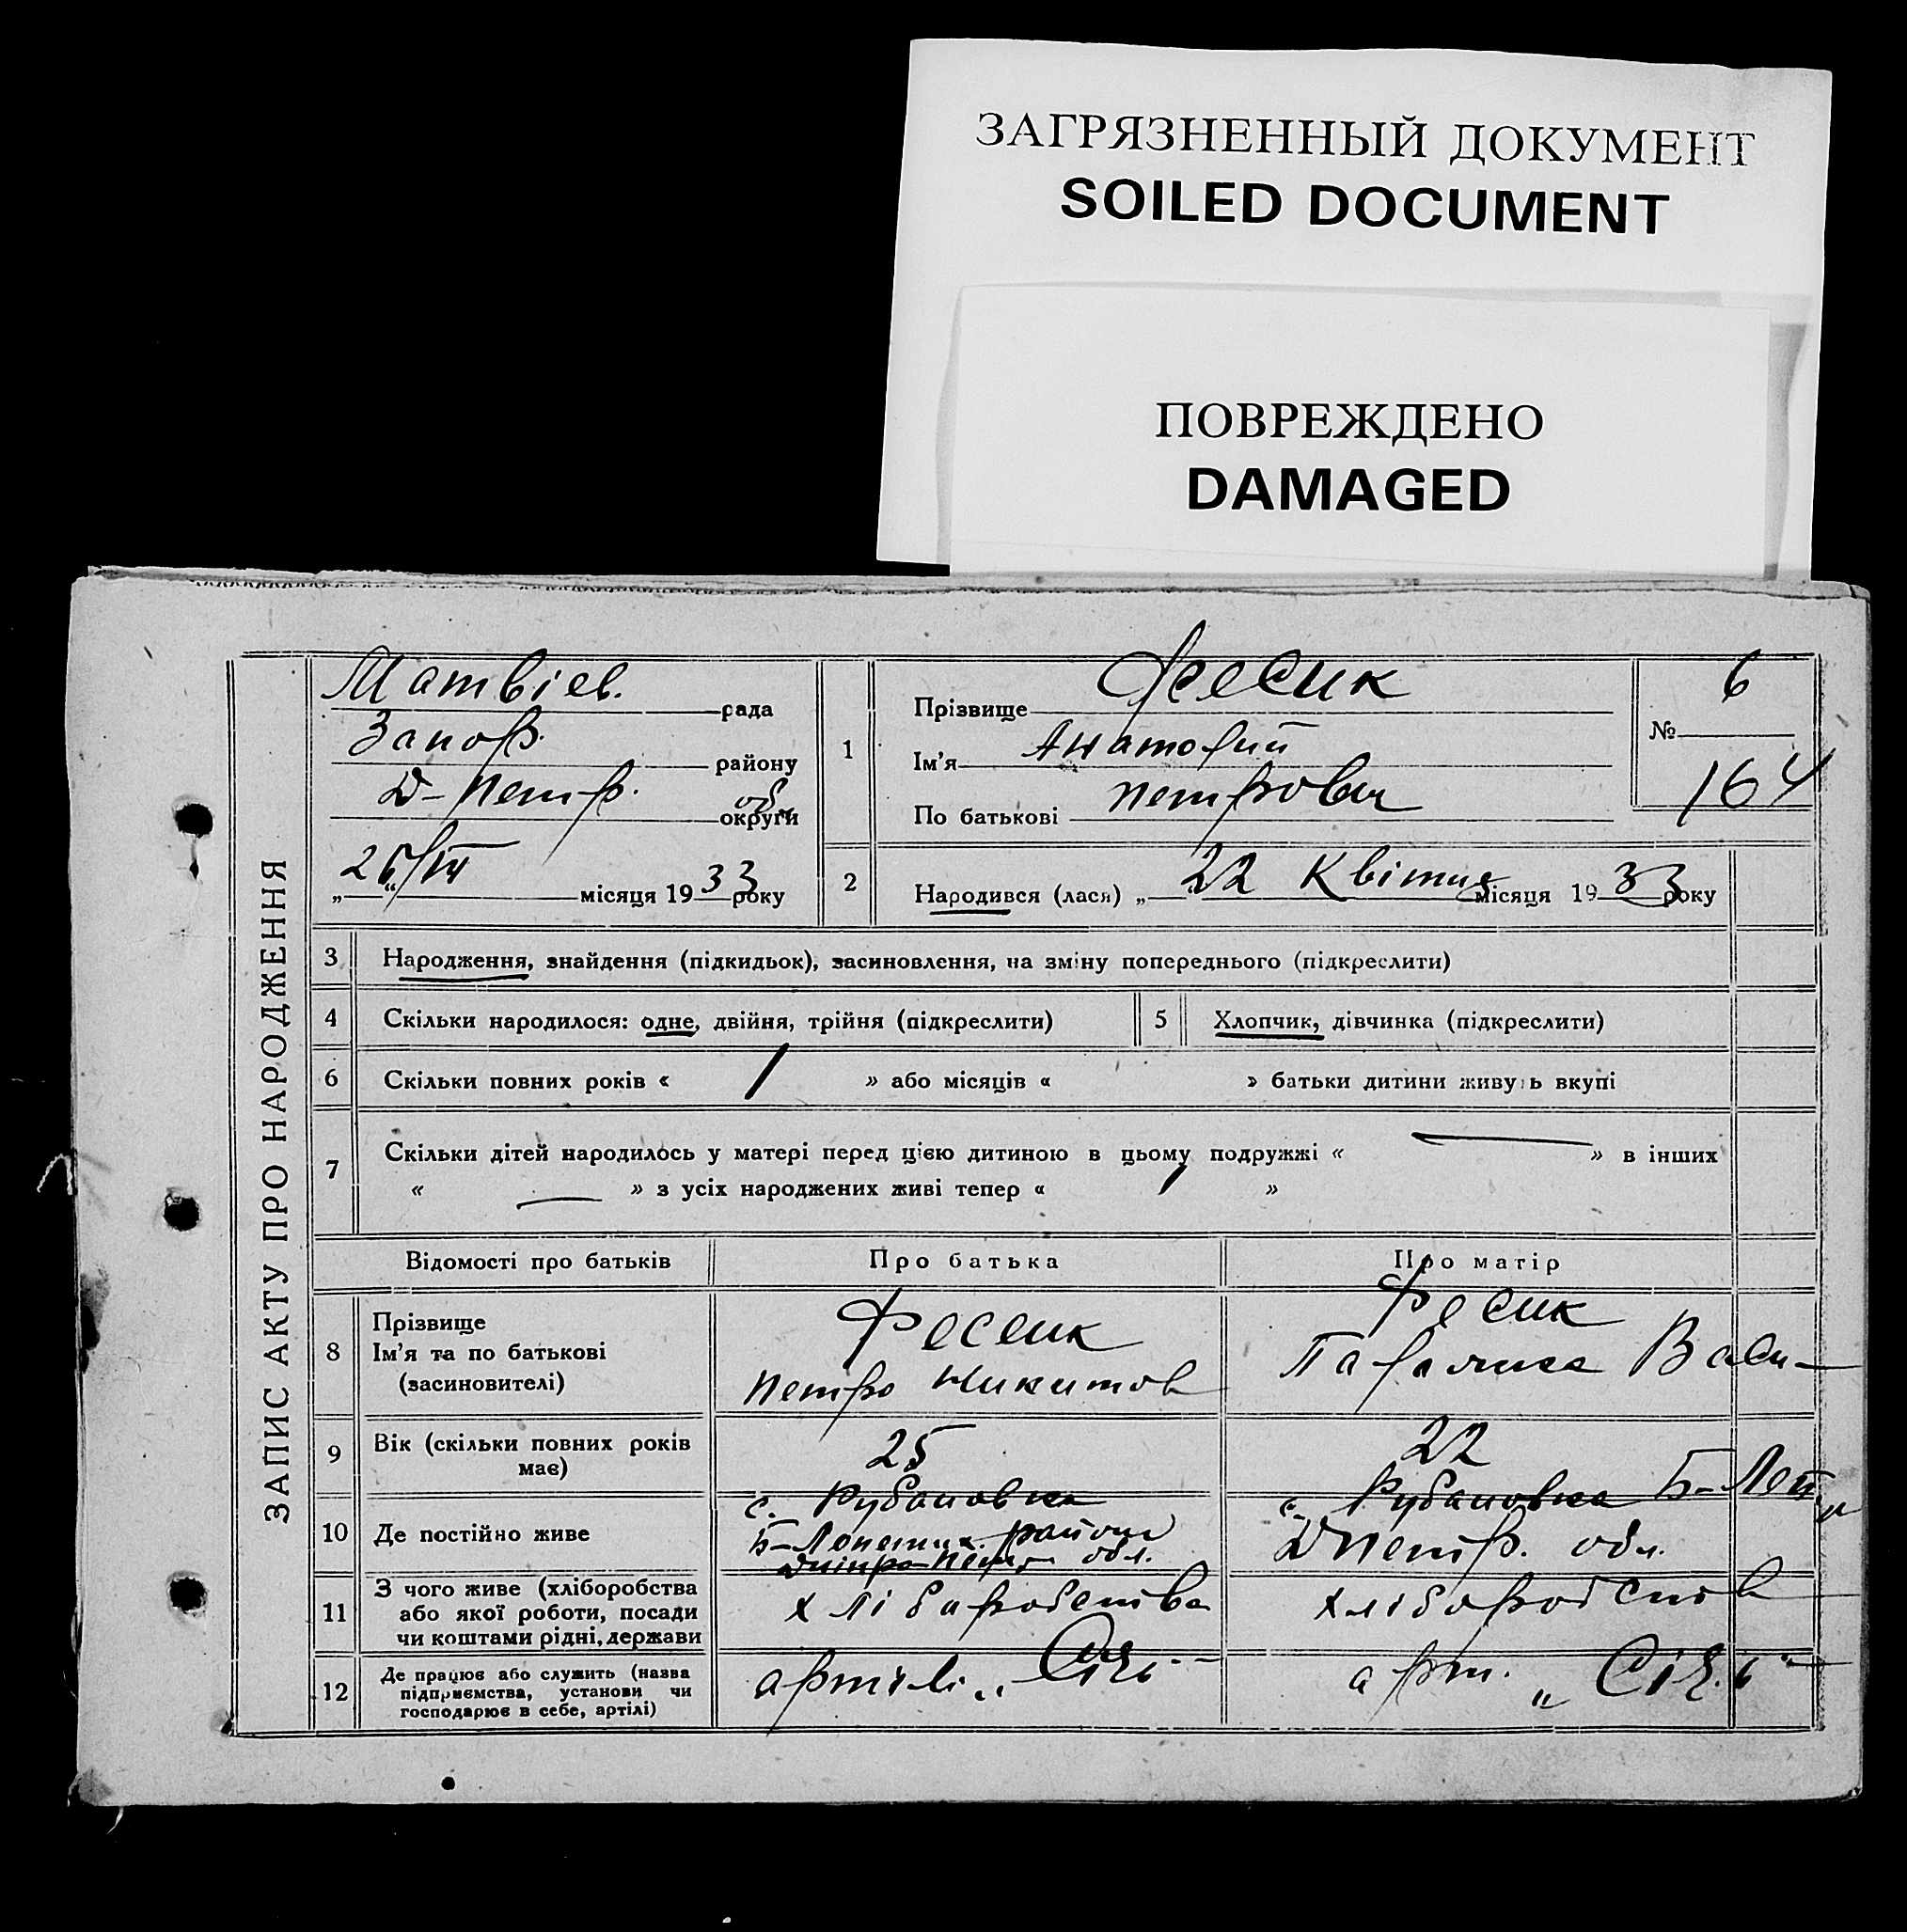 ЗАГРЯЗНЕННЫЙ ДОКУМЕНТ
SOILED DOCUMENT
ПОВРЕЖДЕНО
DAMAGED
ЗАПИС АКТУ ПРО НАРОДЖЕННЯ
Матвіев. рада
Запор. району
Д-Петр. обл округи
„ “ місяця 1933 року
1
Прізвище Фесик
Ім’я Анатолий
По батькові Петрович
№ 6
164
2
Народився (лася) „ 22 Квітня місяця 1933 року
3 Народження, знайдення (підкидьок), засиновлення, на зміну попереднього (підкреслити)
4 Скільки народилося: одне, двійня, трійня (підкреслити)
5 Хлопчик, дівчинка (підкреслити)
6 Скільки повних років « 1 » або місяців « » батьки дитини живуть вкупі
7 Скільки дітей народилось у матері перед цією дитиною в цьому подружжі « — » в інших
« — » з усіх народжених живі тепер « 1 »
Відомості про батьків Про батька Про матір
8 Прізвище
Ім’я та по батькові
(засиновителі)
Фесик
Петро Никитов
Фесик
Васи-
9 Вік (скільки повних років
має)
25
22
10 Де постійно живе
с. Рубановка
Б-Лепетих. района
Дніпро-Петр обл.
с. Рубановка Б-Леп.
Дпетр. обл.
11 З чого живе (хліборобства
або якої роботи, посади
чи коштами рідні, держави
хліборобства
хліборобств
12 Де працює або служить (назва
підприємства, установи чи
господарює в себе, артілі)
артілі „Січь“
арт. „Січь“